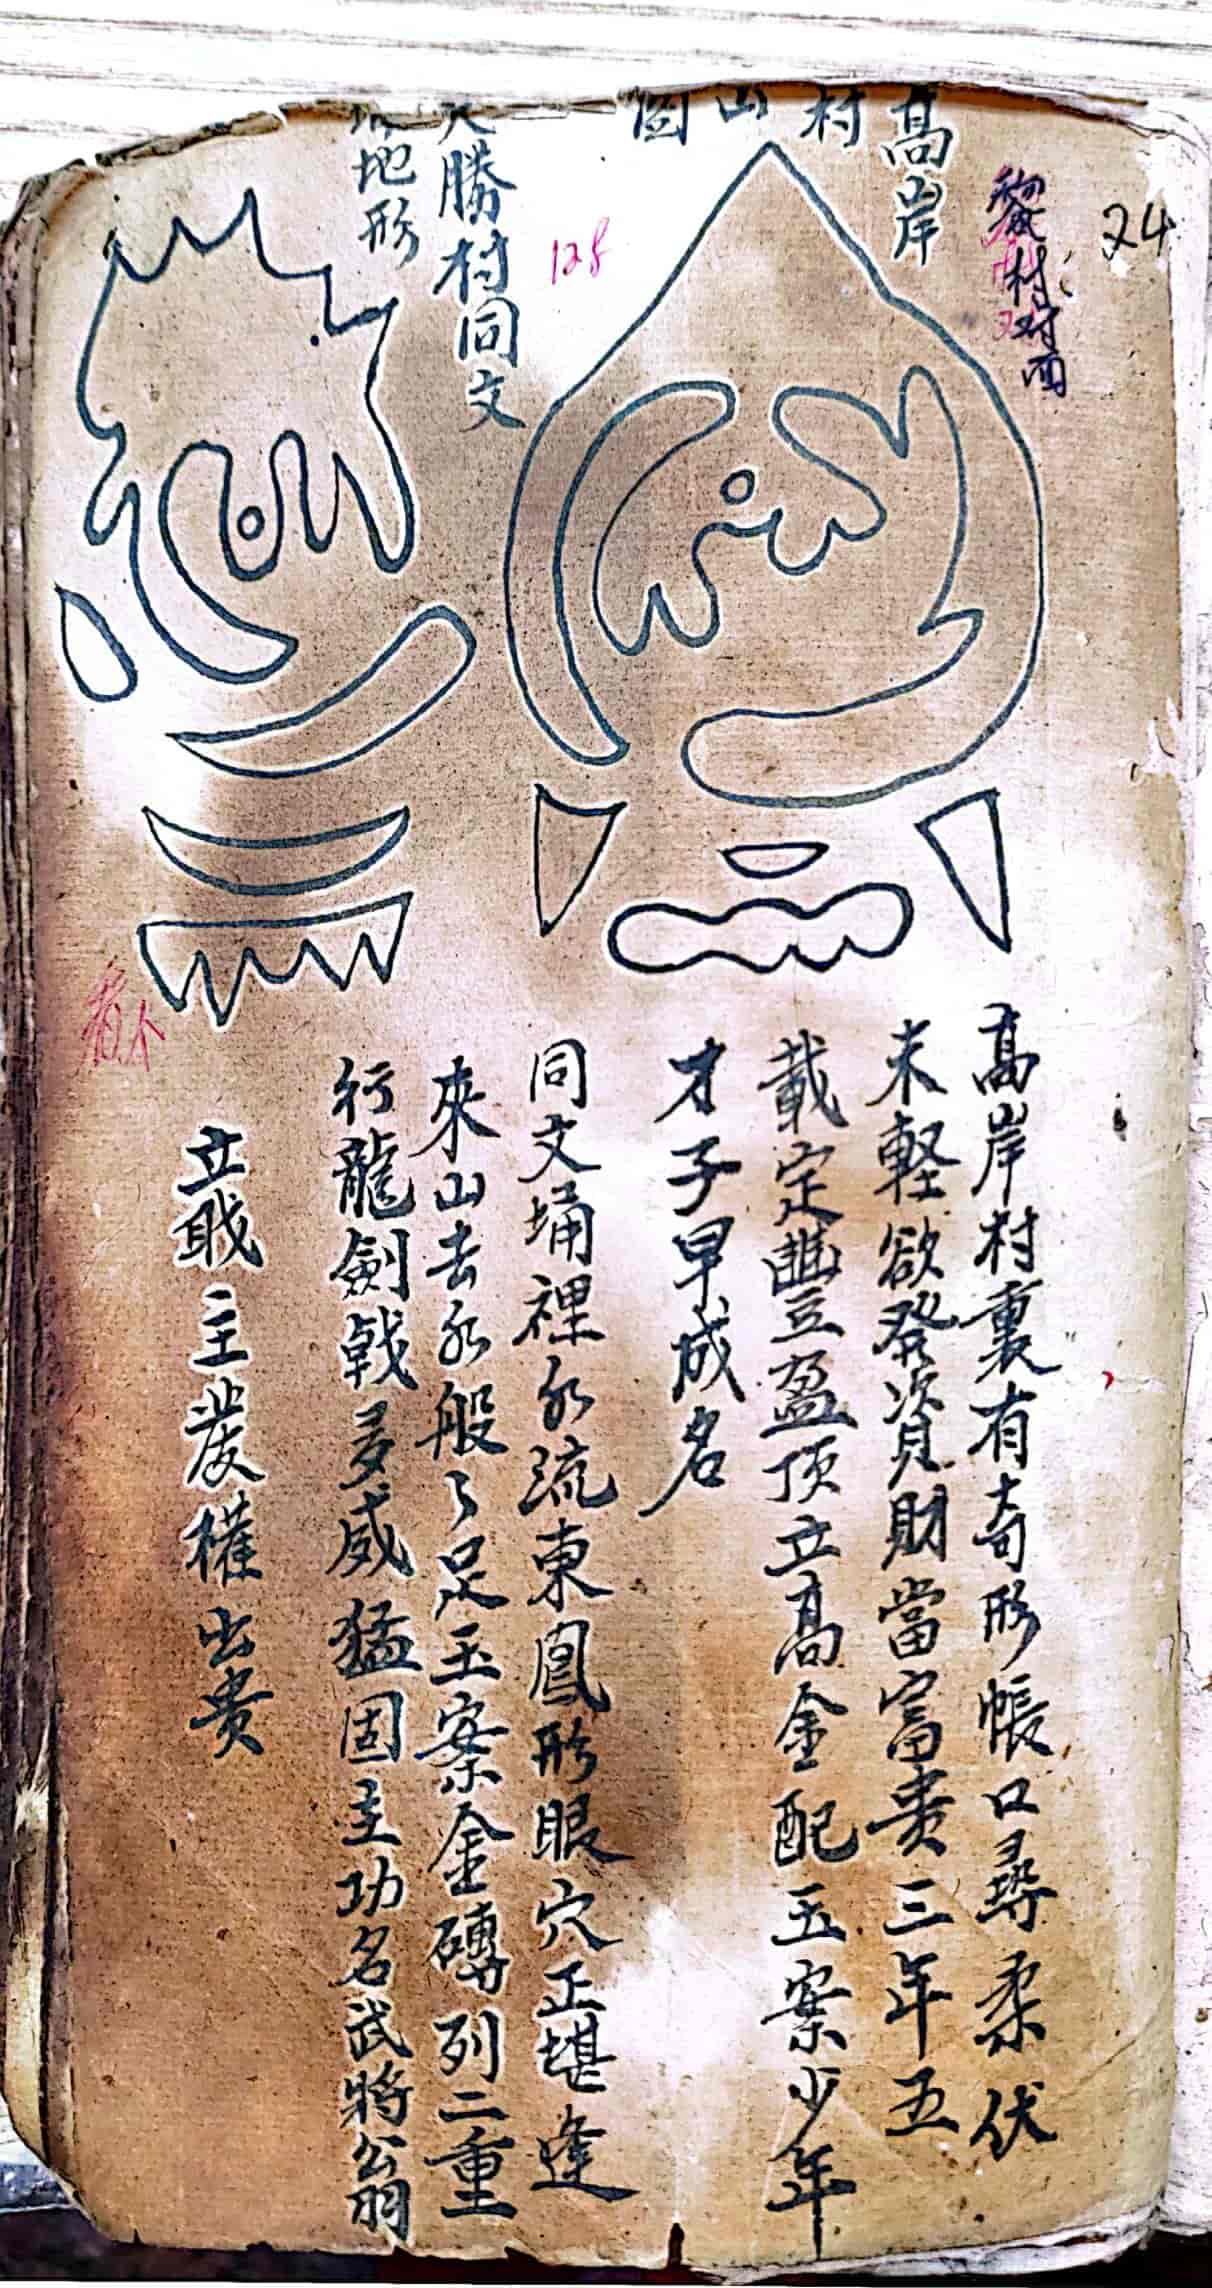 24
村对面
高岸
村
山
圖
128
勝村同文
地形
高岸村裏有奇形帳口尋柔伏
未輕欲發資財當富貴三年五
載定豐盈頂立高金配玉案少年
才子早成名
同文埇裡水流東鳳形眼穴正堪逢
來山去水般々足玉案金磚列二重
行龍劍戟多威猛固主功名武將翁
立戢主農權出貴